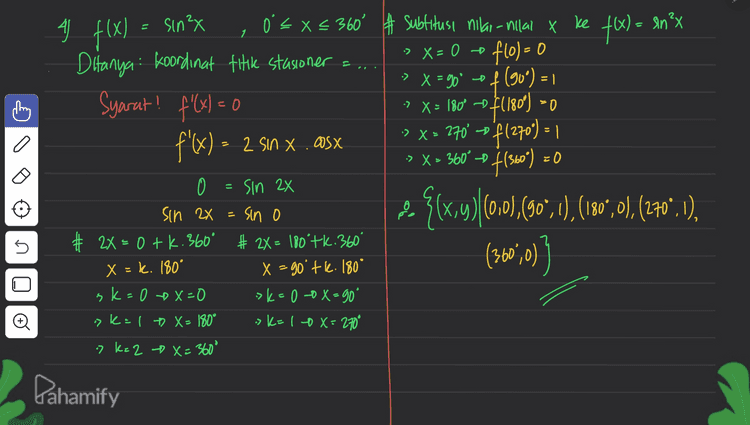 4) f(x) = sin²x , 0° ≤ x ≤ 360°
Ditanya : koordinat titik stasioner = ...
Syarat! f'(x) = 0
f'(x) = 2 sin x . cosx
0 = sin 2x
sin 2x = sin 0
# 2x = 0 + k.360°
x = k. 180°
> k = 0 → x = 0
> k = 1 → x = 180°
> k = 2 → x = 360°
# 2x = 180° + k.360°
x = 90° + k. 180°
> k = 0 → x = 90°
> k = 1 → x = 270°
# Subtitusi nilai-nilai x ke f(x) = sin²x
> x = 0 → f(0) = 0
> x = 90° → f(90°) = 1
> x = 180° → f(180°) = 0
> x = 270° → f(270°) = 1
> x = 360° → f(360°) = 0
∴ {(x,y)|(0,0), (90°, 1), (180°, 0), (270°, 1),
(360°, 0)}
Pahamify